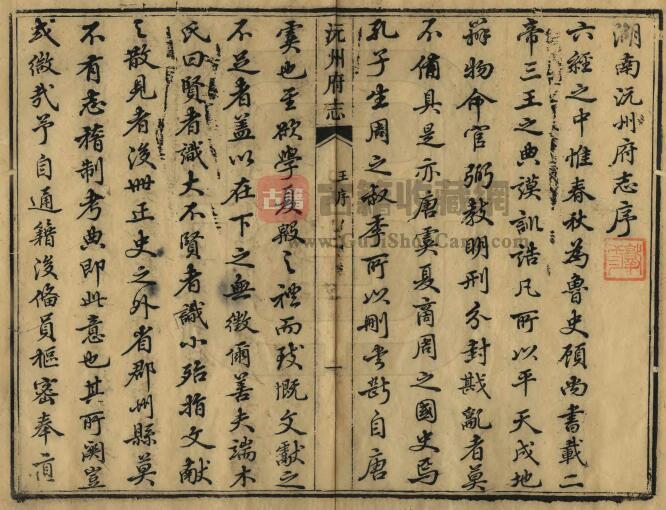 湖南沅州府志序
六經之中惟春秋為魯史顧尚書載二
帝三王之典謨訓誥凡所以平天成地
辨物命官弼教明刑分封戡亂者莫
不備具是亦唐虞夏商周之國史焉
孔子生周之叔季所以刪書斷自唐
沅州府志
王序
一
虞也至欲學夏殷之禮而致慨文獻之
不足者蓋以在下之無徵爾善夫端木
氏曰賢者識大不賢者識小殆指文獻
之散見者後世正史之外省郡州縣莫
不有志稽制考典即此意也其所闕豈
或微哉予自通籍後偹員樞密奉直
古籍
古籍收藏網
www.GujiShouCang.com